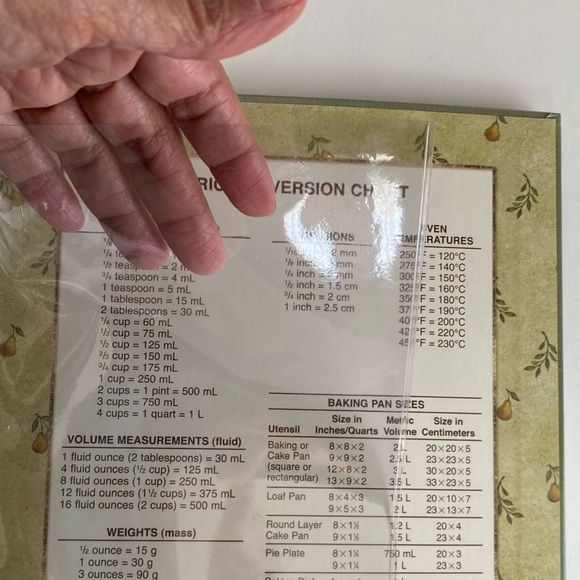 VERSION CHART
1 teaspoon = 5 mL
1 tablespoon = 15 mL
2 tablespoons = 30 mL
¼ cup = 60 mL
⅓ cup = 75 mL
½ cup = 125 mL
⅔ cup = 150 mL
¾ cup = 175 mL
1 cup = 250 mL
2 cups = 1 pint = 500 mL
3 cups = 750 mL
4 cups = 1 quart = 1 L
VOLUME MEASUREMENTS (fluid)
1 fluid ounce (2 tablespoons) = 30 mL
4 fluid ounces (½ cup) = 125 mL
8 fluid ounces (1 cup) = 250 mL
12 fluid ounces (1½ cups) = 375 mL
16 fluid ounces (2 cups) = 500 mL
WEIGHTS (mass)
½ ounce = 15 g
1 ounce = 30 g
3 ounces = 90 g
½ inch = 1.5 cm
¾ inch = 2 cm
1 inch = 2.5 cm
OVEN
TEMPERATURES
250°F = 120°C
275°F = 140°C
300°F = 150°C
325°F = 160°C
350°F = 180°C
375°F = 190°C
400°F = 200°C
425°F = 220°C
450°F = 230°C
BAKING PAN SIZES
Utensil Size in Inches/Quarts Metric Volume Size in Centimeters
Baking or 8×8×2 2 L 20×20×5
Cake Pan 9×9×2 2.5 L 23×23×5
(square or 12×8×2 3 L 30×20×5
rectangular) 13×9×2 3.5 L 33×23×5
Loaf Pan 8×4×3 1.5 L 20×10×7
9×5×3 2 L 23×13×7
Round Layer 8×1½ 1.2 L 20×4
Cake Pan 9×1½ 1.5 L 23×4
Pie Plate 8×1¼ 750 mL 20×3
9×1¼ 1 L 23×3